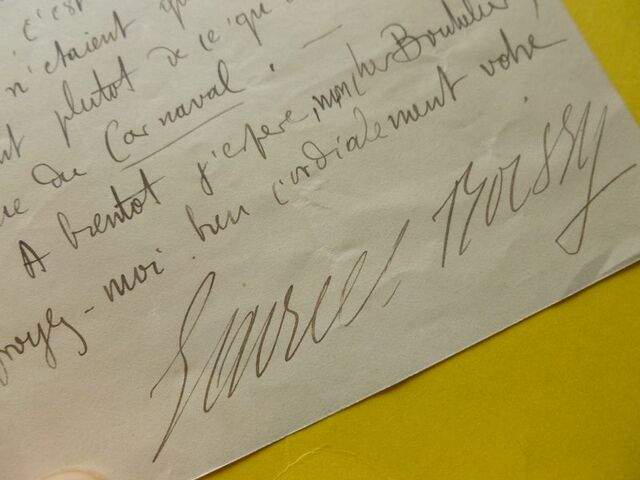 c'est
n'étaient qu
plutot de ce qu
du Carnaval. —
A bientot j'espère, mon cher Bouhelier,
croyez-moi bien cordialement votre